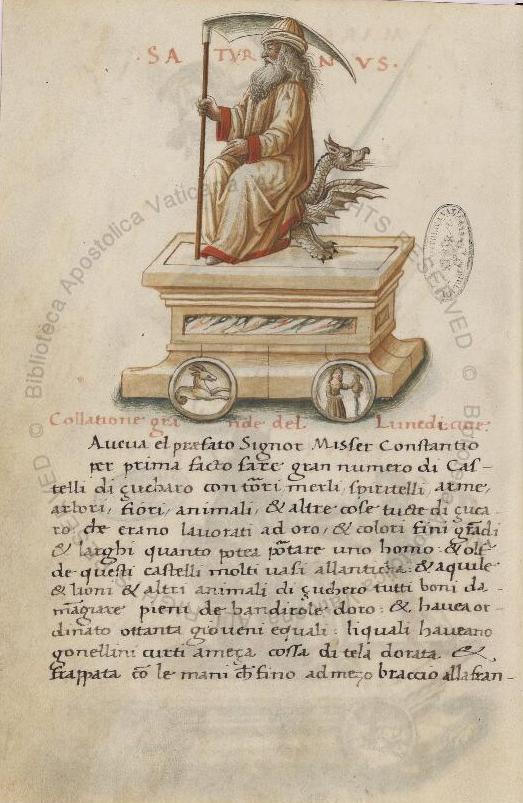 · SATURNUS ·
Collatione grande del Lunedi cioe:
Aueua el præfato Signor Misser Constantio
per prima facto fare gran numero di Cas-
telli di çucharo con tõrri merli, spiritelli, arme,
arbori, fiori, animali, & altre cose tucte di çuca
ro: che erano lauorati ad oro, & colori fini grãdi
& larghi quanto potea põtare uno homo: & oltr
de questi castelli molti uasi allanticha: & aquile
& lioni & altri animali di çuchero tutti boni da
mãgiare pieni de bandirole doro: & hauea or
dinato ottanta gioueni equali: liquali haueano
gonellini curti ameça cossa di tela dorata &
frappata cõ le mani chi fino ad meço braccio alla fran-
© Biblioteca Apostolica Vaticana
RIGHTS RESERVED ©